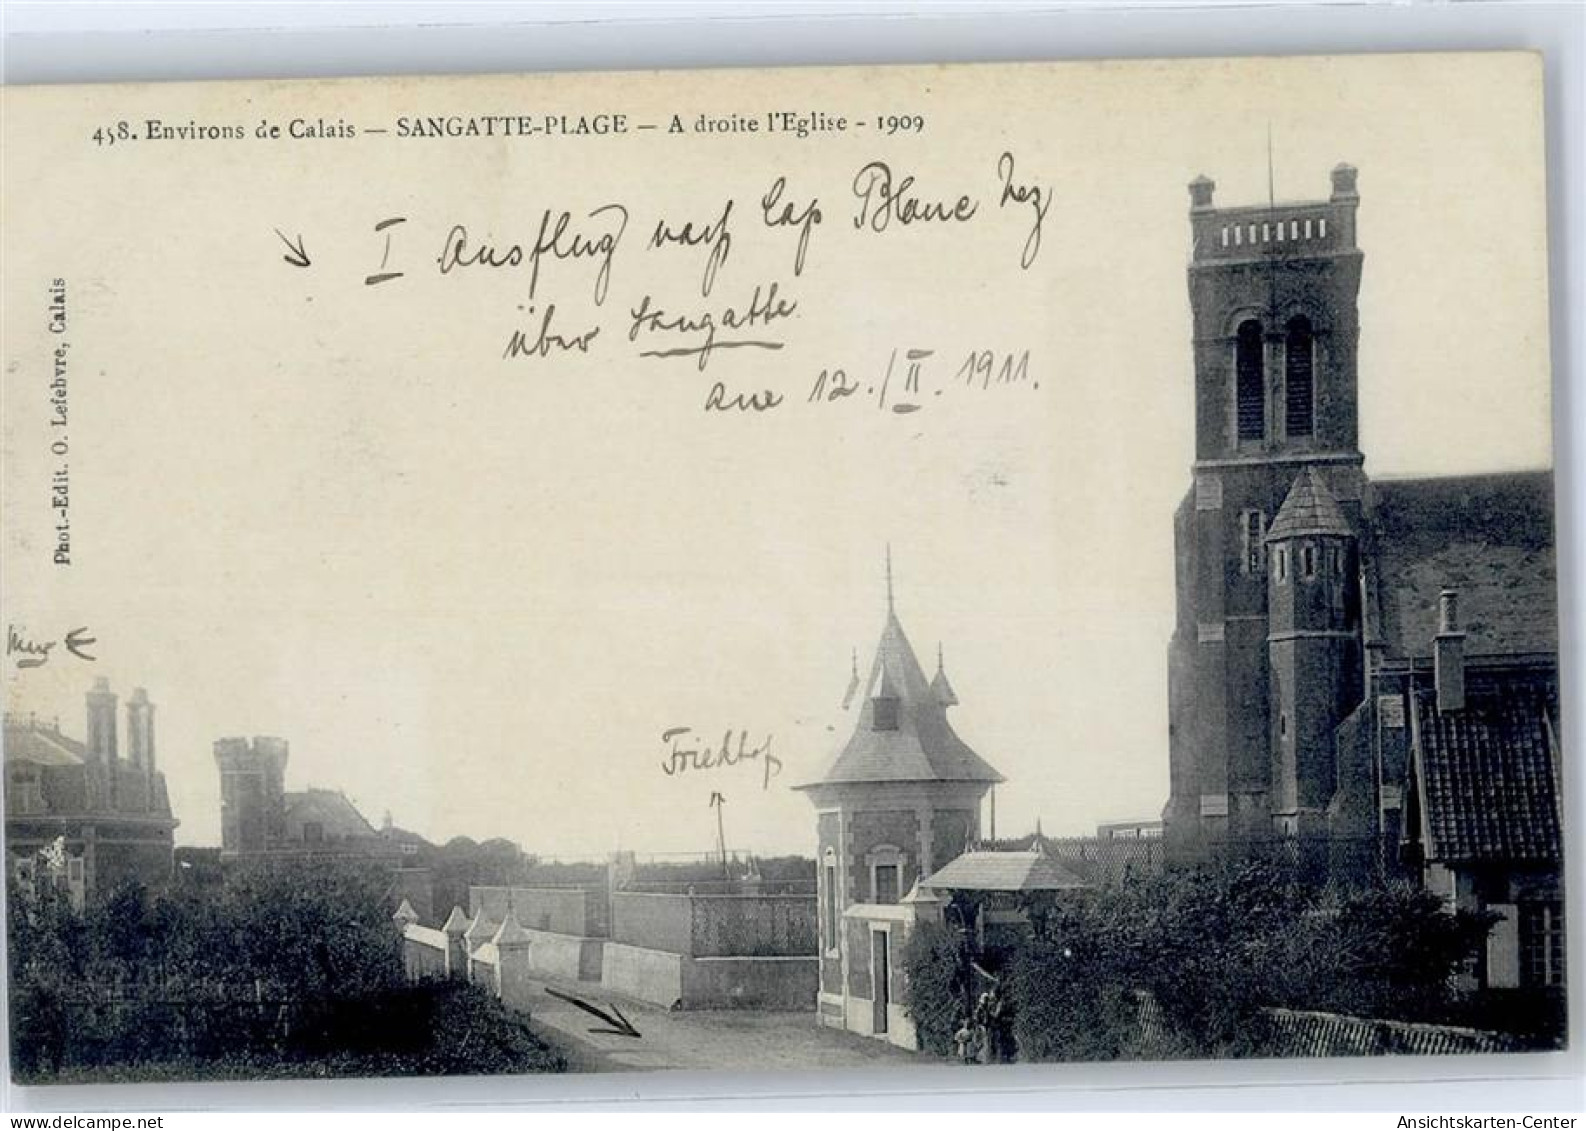 458. Environs de Calais — SANGATTE-PLAGE — A droite l'Eglise - 1909
I Ausflug nach Cap Blanc Nez
über Sangatte
am 12./II. 1911.
Phot.-Edit. O. Lefebvre, Calais
Meer
Friedhof
delcampe.net
Ansichtskarten-Center